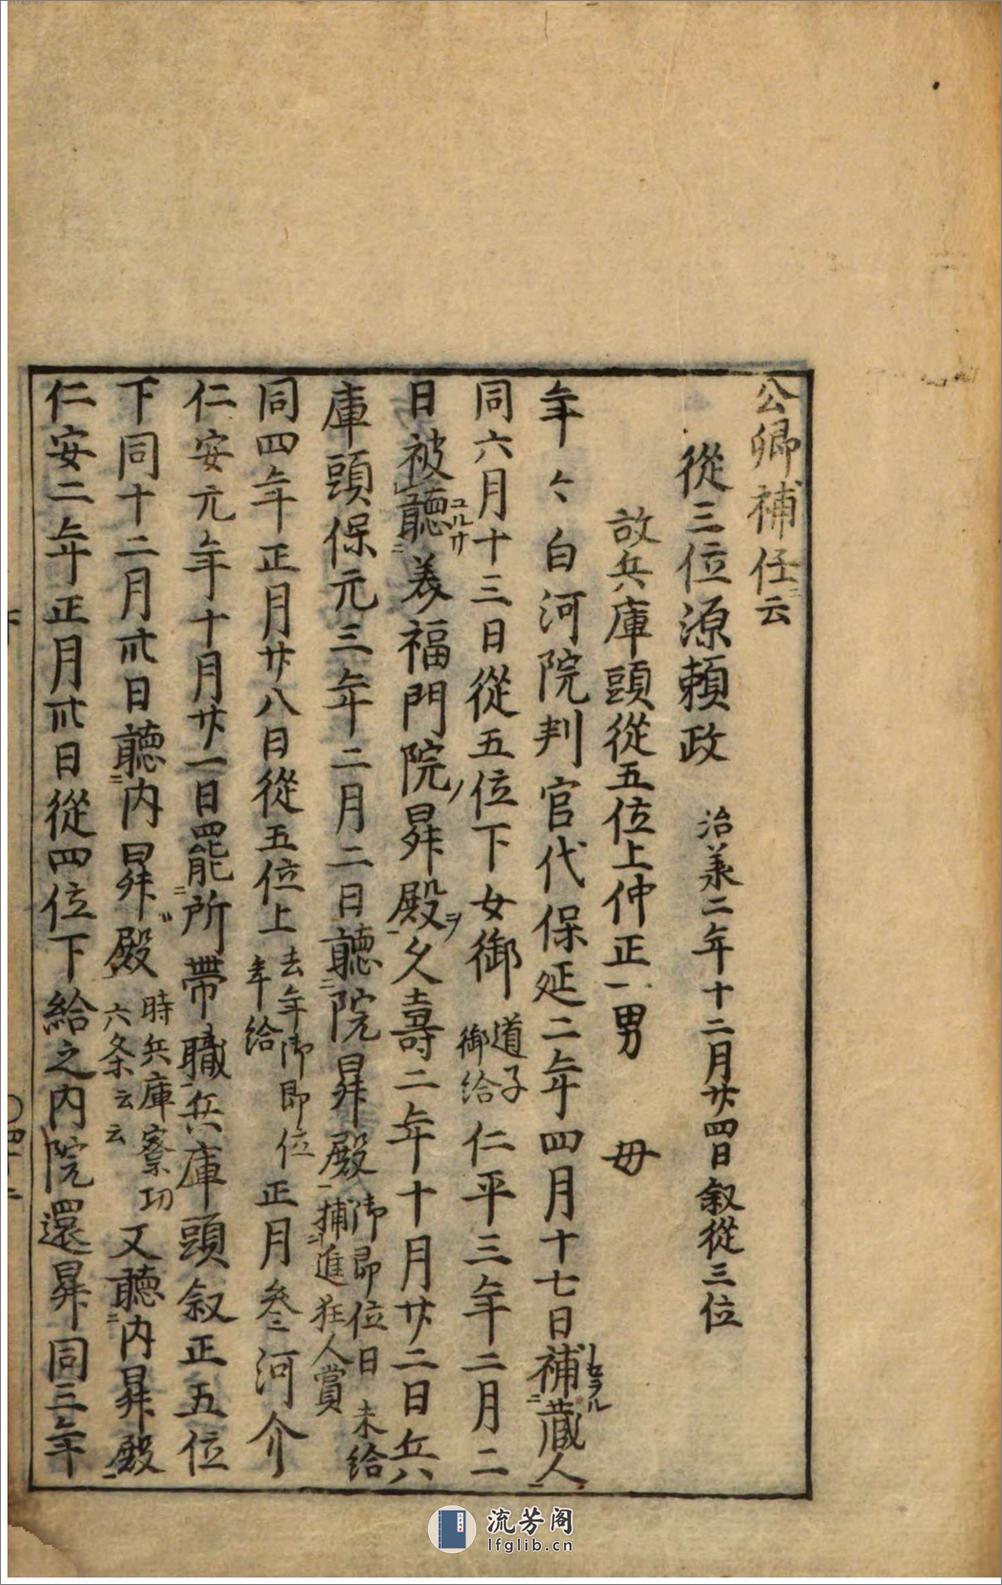 公卿補任云
從三位源頼政 治承二年十二月廿四日叙從三位
故兵庫頭從五位上仲正一男 母
年々白河院判官代保延二年四月十七日補蔵人
同六月十三日從五位下女御道子御給仁平三年二月二
日被聴美福門院昇殿久壽二年十月廿二日兵
庫頭保元三年二月二日聴院昇殿御即位日未給捕進狂人賞
同四年正月廿八日從五位上去年御即位年給正月叄河介
仁安元年十月廿一日罷所帶職兵庫頭叙正五位
下同十二月卅日聴内昇殿時兵庫寮功六条云云又聴内昇殿
仁安二年正月卅日從四位下給之内院還昇同三年
流芳阁
lfglib.cn